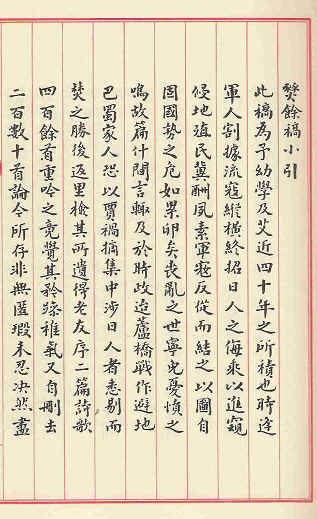 爕餘稿小引
此稿為予幼學及艾近四十年之所積也時逢
軍人割據流寇縱橫終招日人之侮乘以進窺
侵地殖民冀酬夙素軍寇反從而結之以圖自
固國勢之危如累卵矣喪亂之世寧免憂憤之
鳴故篇什間言輒及於時政迨蘆橋戰作避地
巴蜀家人恐以賈禍摘集中涉日人者悉剔而
焚之勝後返里檢其所遺得老友序二篇詩歌
四百餘首重吟之竟覺其矜躁稚氣又自刪去
二百數十首論今所存非無匿瑕未忍決然盡